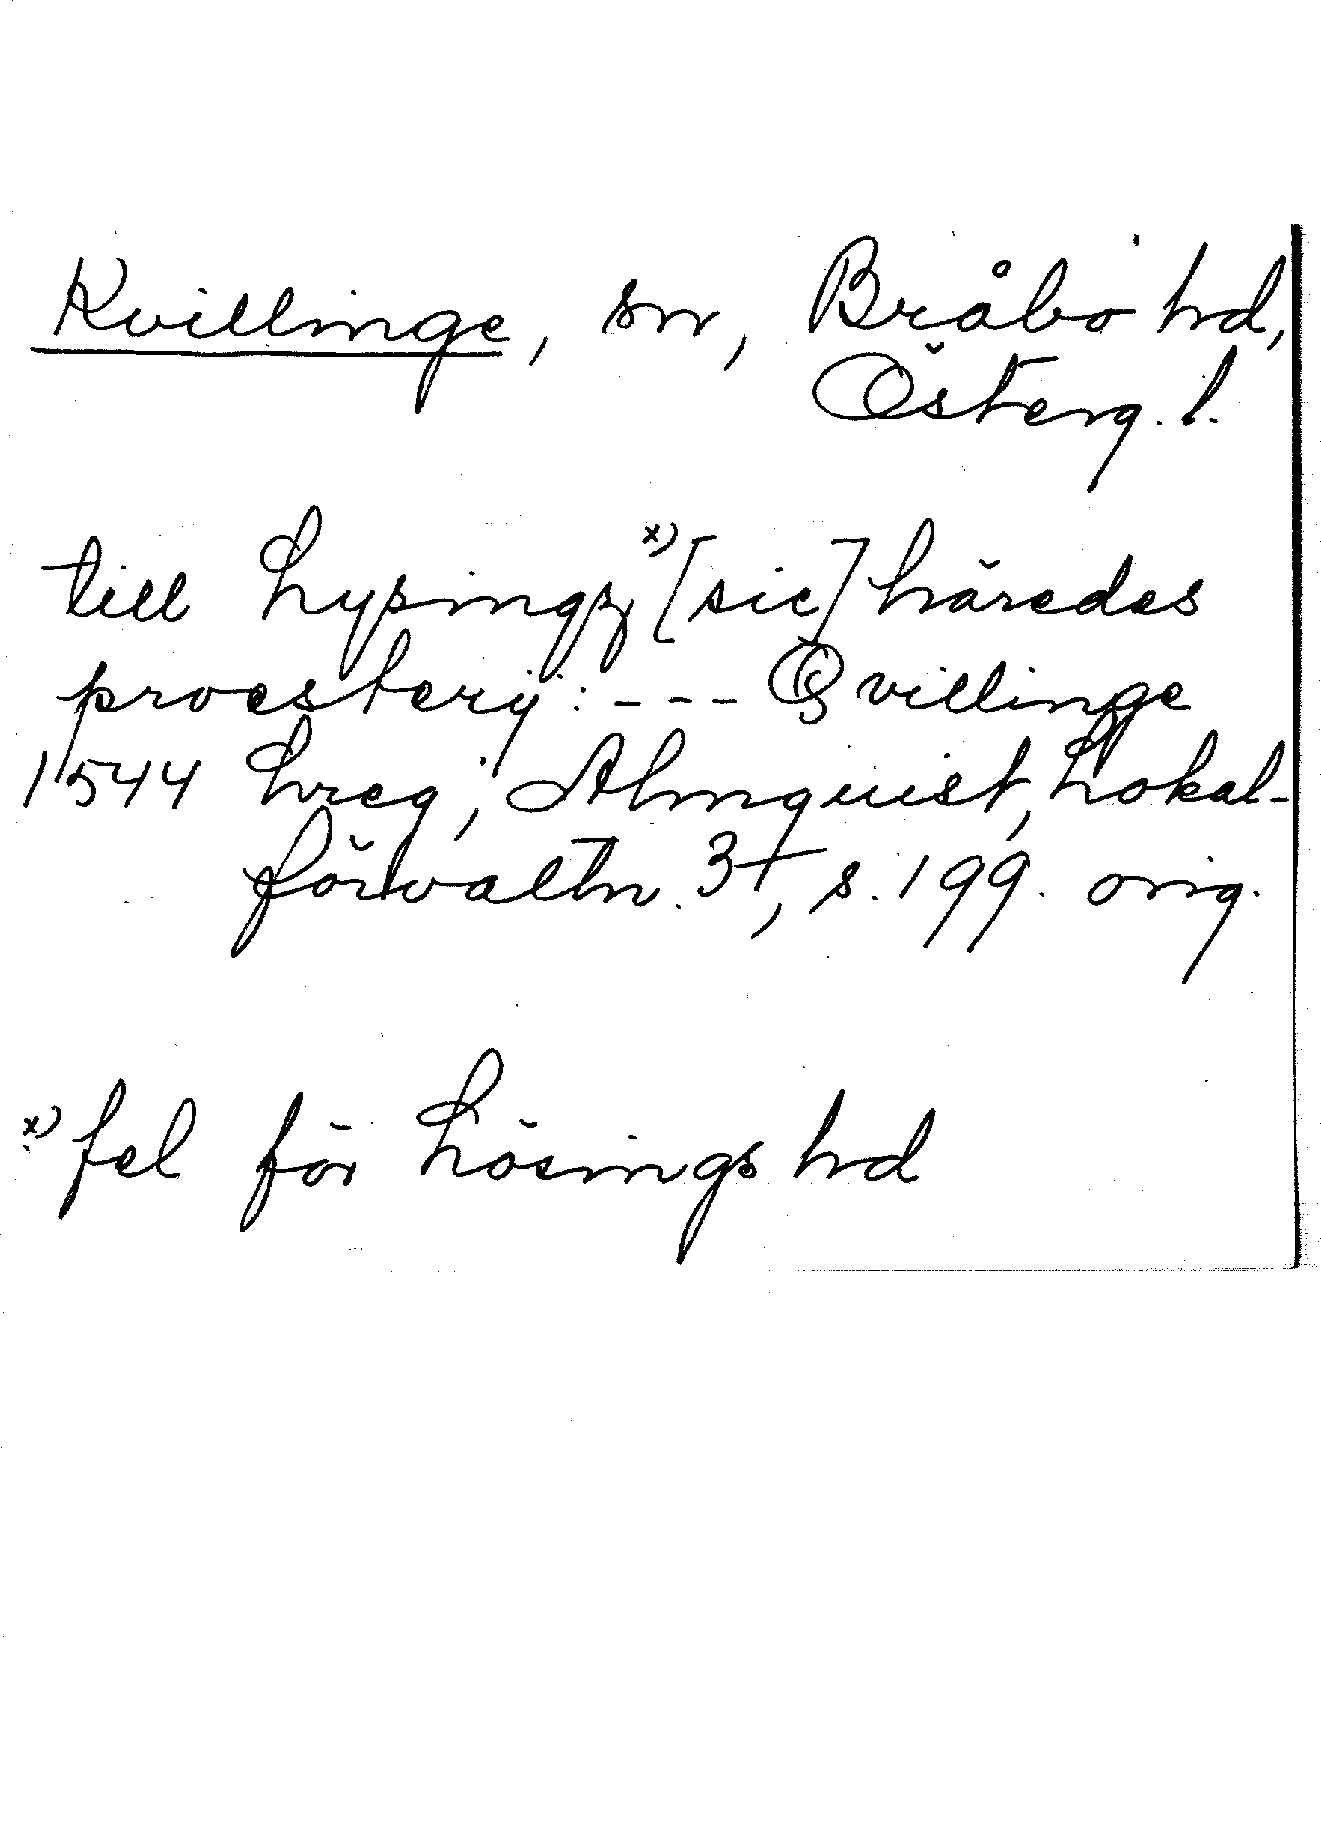 Kvillinge, sn, Bråbo hd,
Österg. l.
till Lysingz x) [sic] häredes
proesterij: --- Qvillinge
1544 Lreg; Almquist, Lokal-
förvaltn. 3†, s. 199. orig.
x) fel för Lösings hd